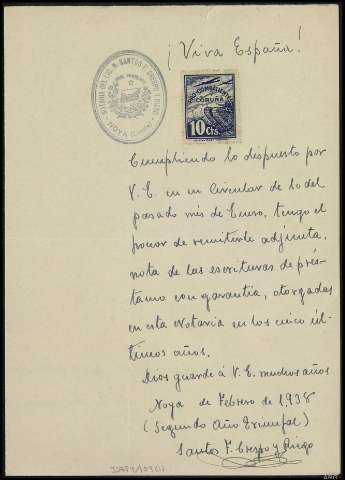 ¡Viva España!
NOTARIA DEL LIC. N. SANTOS F. CRESPO Y RIEGO
NOYA (Coruña)
PRO-COMBATIENTES
CORUÑA
10 Cts.
Cumpliendo lo dispuesto por
V. E. en su Circular de 10 del
pasado mes de Enero, tengo el
honor de remitirle adjunta,
nota de las escrituras de prés-
tamo con garantia, otorgadas
en esta Notaria en los cinco úl-
timos años.
Dios guarde á V. E. muchos años
Noya de Febrero de 1938
(Segundo Año Triunfal)
Santos F. Crespo y Riego